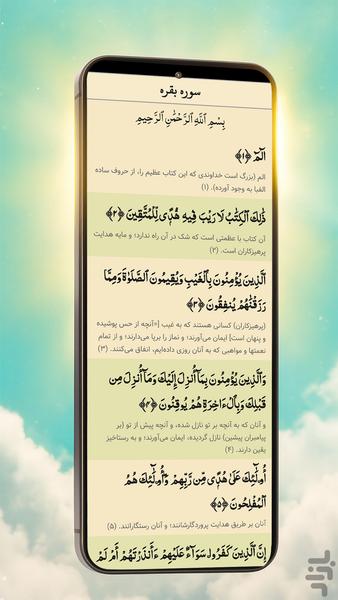 سوره بقره
بِسْمِ ٱللَّهِ ٱلرَّحْمَٰنِ ٱلرَّحِيمِ
الٓمٓ ﴿۱﴾
الم (بزرگ است خداوندی که این کتاب عظیم را، از حروف ساده
الفبا به وجود آورده). (۱)
ذَٰلِكَ ٱلْكِتَٰبُ لَا رَيْبَ فِيهِ هُدًى لِّلْمُتَّقِينَ ﴿۲﴾
آن کتاب با عظمتی است که شک در آن راه ندارد؛ و مایه هدایت
پرهیزکاران است. (۲)
ٱلَّذِينَ يُؤْمِنُونَ بِٱلْغَيْبِ وَيُقِيمُونَ ٱلصَّلَوٰةَ وَمِمَّا
رَزَقْنَٰهُمْ يُنفِقُونَ ﴿۳﴾
(پرهیزکاران) کسانی هستند که به غیب [=آنچه از حس پوشیده
و پنهان است] ایمان می‌آورند؛ و نماز را برپا می‌دارند؛ و از تمام
نعمتها و مواهبی که به آنان روزی داده‌ایم، انفاق می‌کنند. (۳)
وَٱلَّذِينَ يُؤْمِنُونَ بِمَآ أُنزِلَ إِلَيْكَ وَمَآ أُنزِلَ مِن
قَبْلِكَ وَبِٱلْءَاخِرَةِ هُمْ يُوقِنُونَ ﴿۴﴾
و آنان که به آنچه بر تو نازل شده، و آنچه پیش از تو (بر
پیامبران پیشین) نازل گردیده، ایمان می‌آورند؛ و به رستاخیز
یقین دارند. (۴)
أُو۟لَٰٓئِكَ عَلَىٰ هُدًى مِّن رَّبِّهِمْ وَأُو۟لَٰٓئِكَ هُمُ
ٱلْمُفْلِحُونَ ﴿۵﴾
آنان بر طریق هدایت پروردگارشانند؛ و آنان رستگارانند. (۵)
إِنَّ ٱلَّذِينَ كَفَرُوا۟ سَوَآءٌ عَلَيْهِمْ ءَأَنذَرْتَهُمْ أَمْ لَمْ
بازار